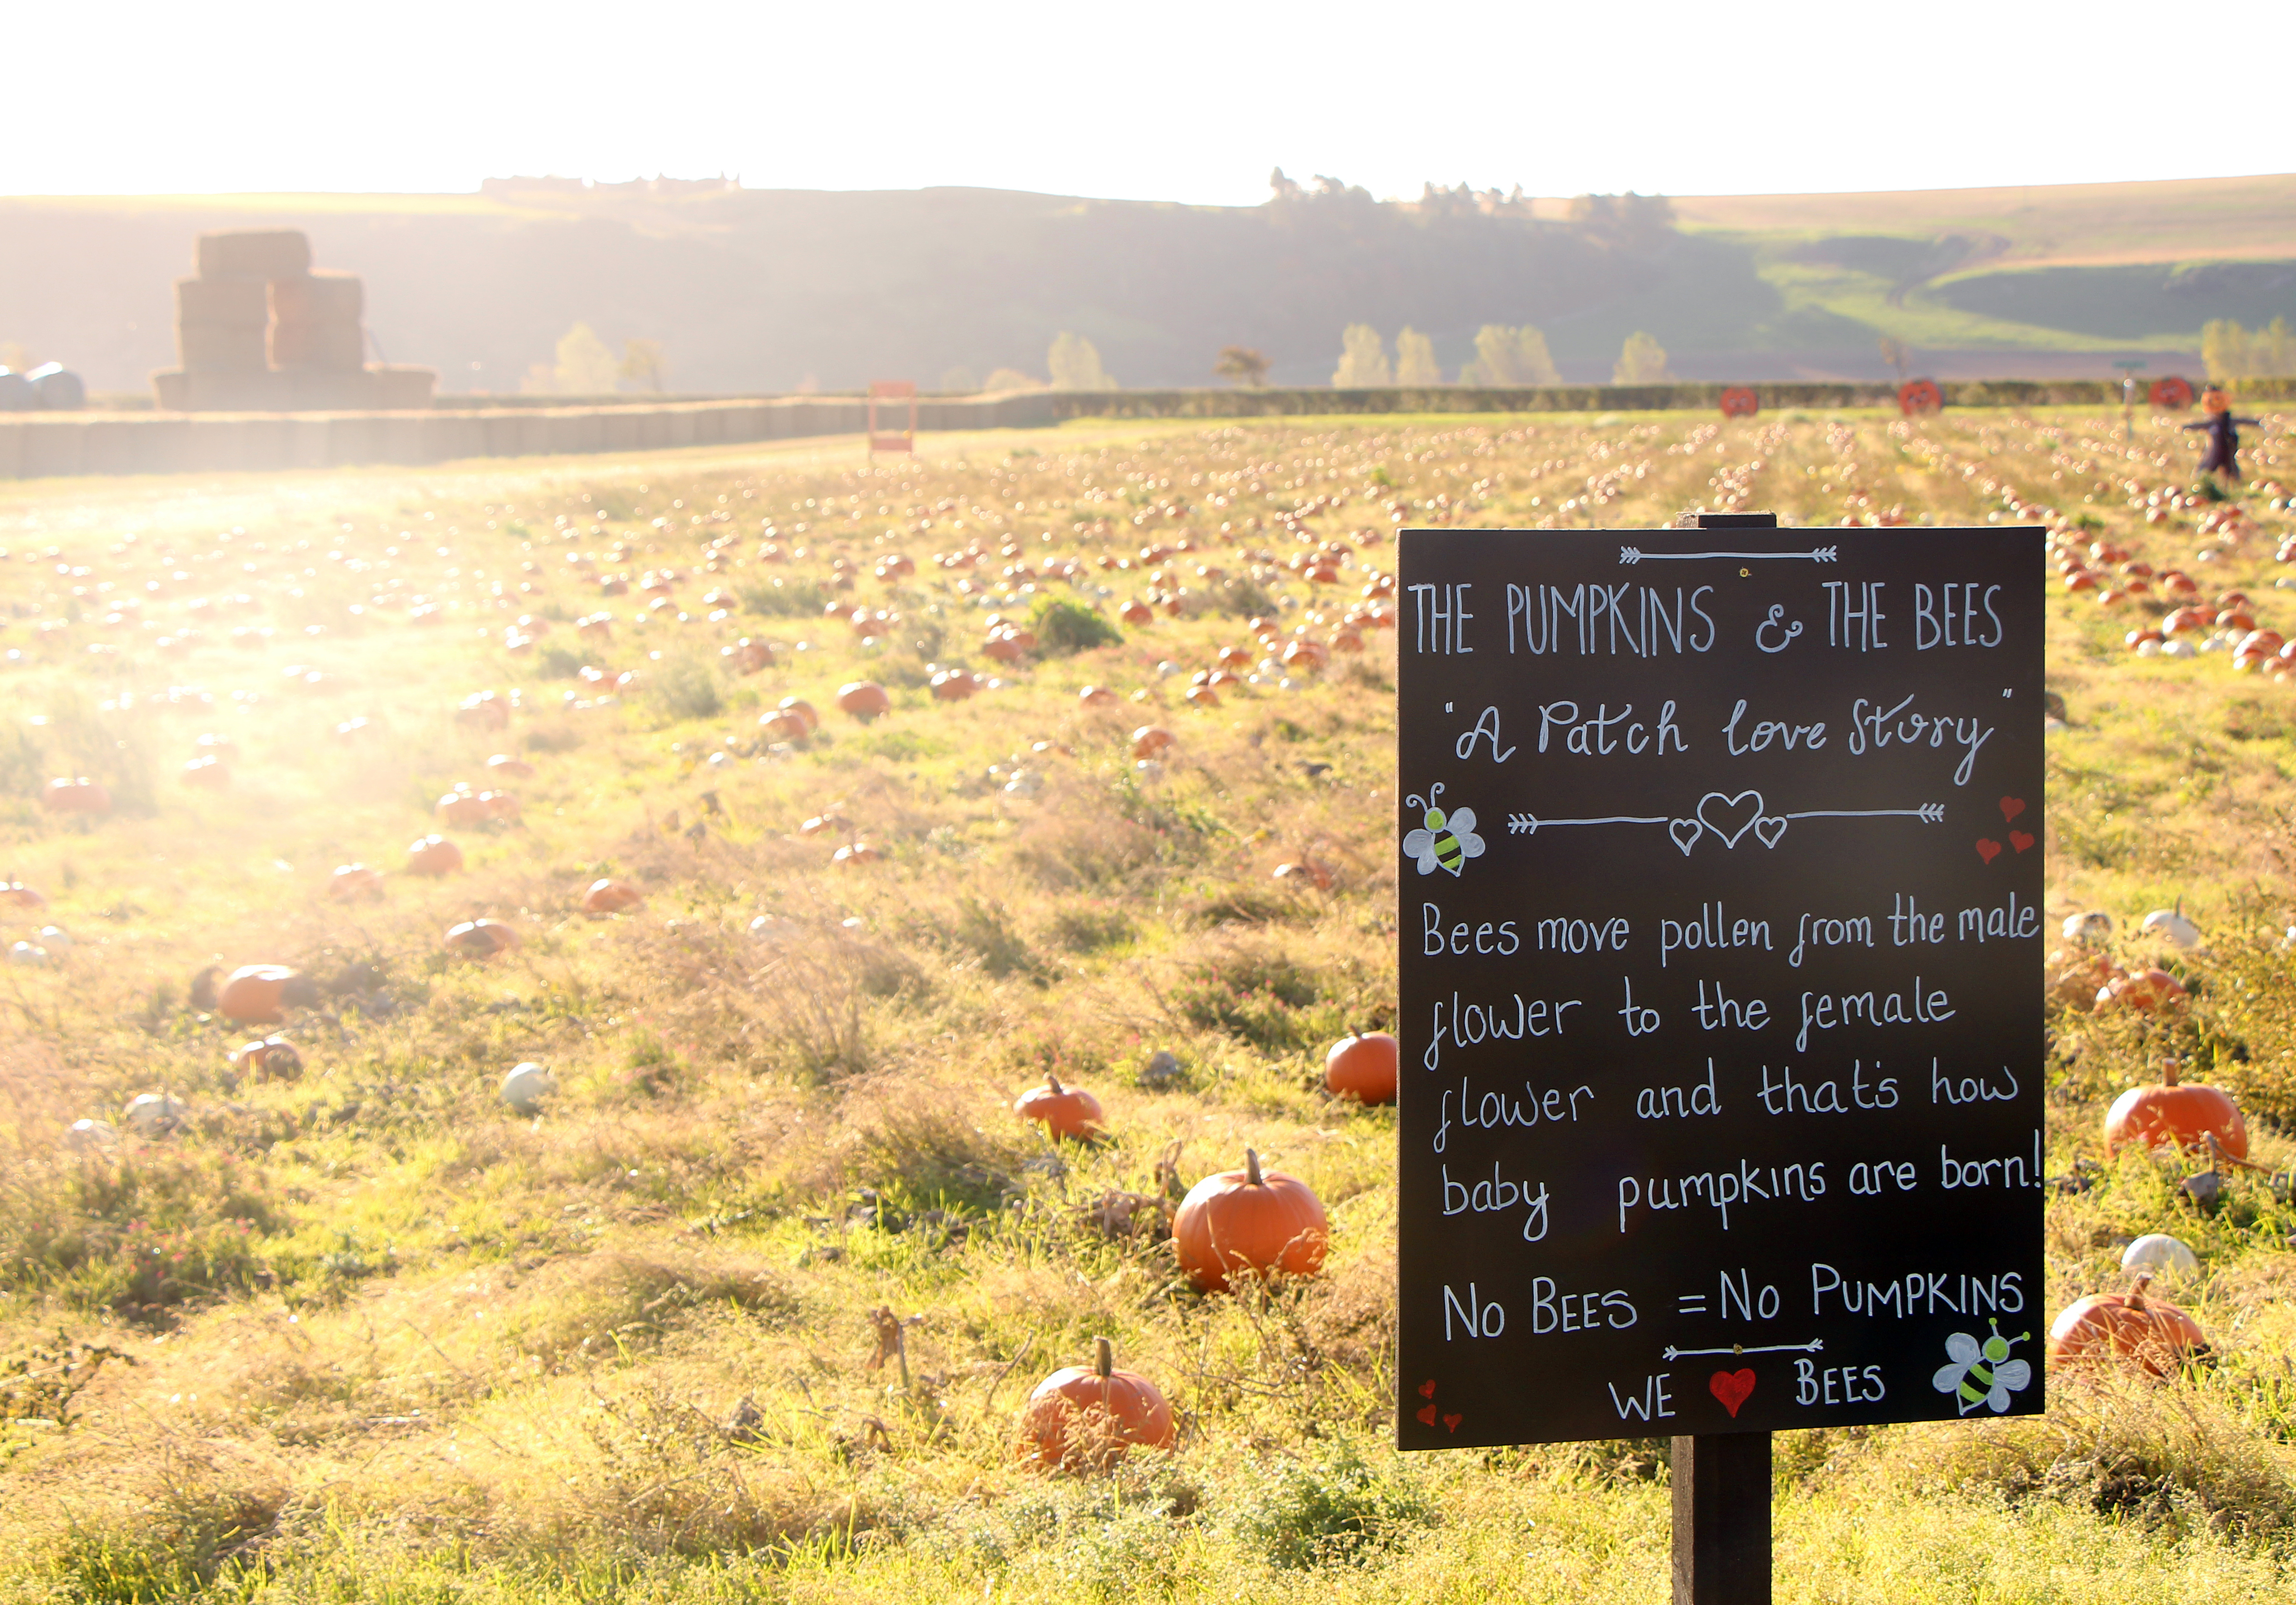 THE PUMPKINS & THE BEES
"A Patch love Story"
Bees move pollen from the male
flower to the female
flower and that's how
baby pumpkins are born!
NO BEES = NO PUMPKINS
WE ❤ BEES